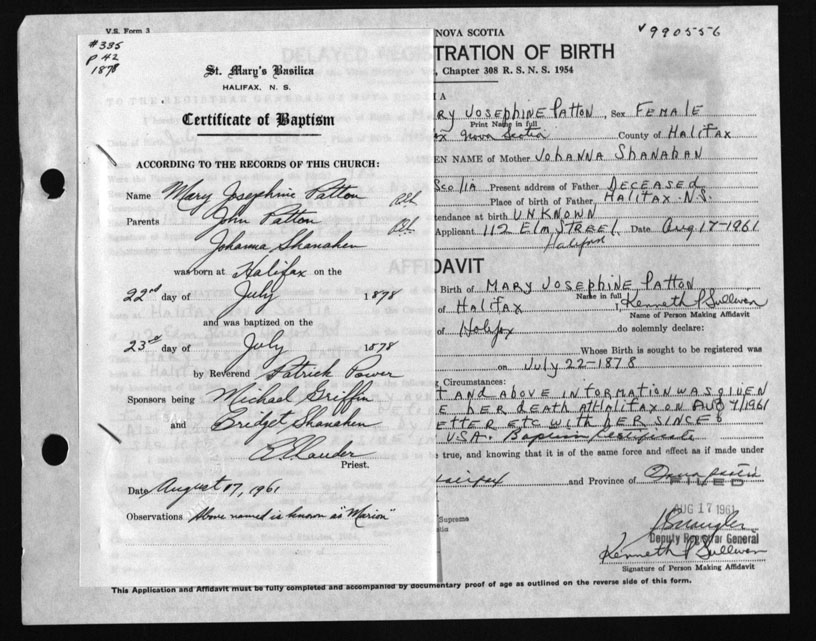 V.S. Form 3
#335
P 42
1878
St. Mary's Basilica
HALIFAX, N. S.
Certificate of Baptism
ACCORDING TO THE RECORDS OF THIS CHURCH:
Name Mary Josephine Patton
Parents John Patton
Johanna Shanahen
was born at Halifax on the
22nd day of July 1878
and was baptized on the
23rd day of July 1878
by Reverend Patrick Power
Sponsors being Michael Griffin
and Bridget Shanahen
Priest.
Date August 17, 1961
Observations Above named is known as "Marion"
NOVA SCOTIA
990556
TRATION OF BIRTH
, Chapter 308 R. S. N. S. 1954
RY JOSEPHINE PATTON, Sex FEMALE
Print Name in full
ax Nova Scotia County of HALIFAX
DEN NAME of Mother JOHANNA SHANAHAN
SCOTIA Present address of Father DECEASED
Place of birth of Father, HALIFAX N.S.
tendance at birth UNKNOWN
Applicant 112 ELM STREET, Date Aug 17-1961
Halifax
DAVIT
Birth of MARY JOSEPHINE PATTON
Name in full
I, Kenneth P Sullivan
of HALIFAX
Name of Person Making Affidavit
of Halifax do solemnly declare:
Whose Birth is sought to be registered was
on July 22-1878
g Circumstances:
T AND ABOVE INFORMATION WAS GIVEN
E HER DEATH AT HALIFAX ON AUG 7/1961
ETTER ETC WITH HER SINCE
USA. Baptism Certificate
be true, and knowing that it is of the same force and effect as if made under
Halifax and Province of Nova Scotia
FILED
AUG 17 1961
Supreme
Deputy Registrar General
Kenneth P Sullivan
Signature of Person Making Affidavit
This Application and Affidavit must be fully completed and accompanied by documentary proof of age as outlined on the reverse side of this form.